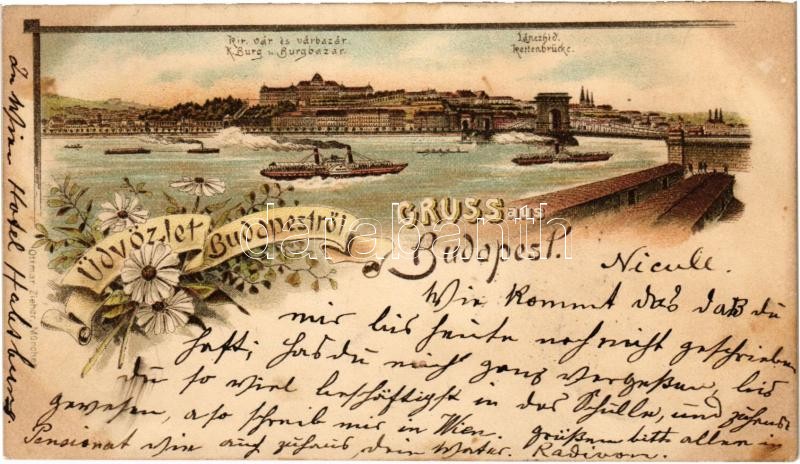 Kir. vár és várbazár.
K. Burg u. Burgbazar.
Lánczhíd.
Kettenbrücke.
Üdvözlet Budapestről
GRUSS aus
Budapest.
darabanth
Ottmar Zieher, München
Nicull.
Wie kommt das daß du
mir bis heute noch nicht geschrieben
hast; hasdu mich ganz vergeßen, bis
du so viel beschäftigst in der Schulle, und zuhause
gewesen, aso schreib mir in Wien. größen bitte allen in
Pensionat wie auch zuhaus dein Vater. Radivon.
In Wien Hotel Habsburg